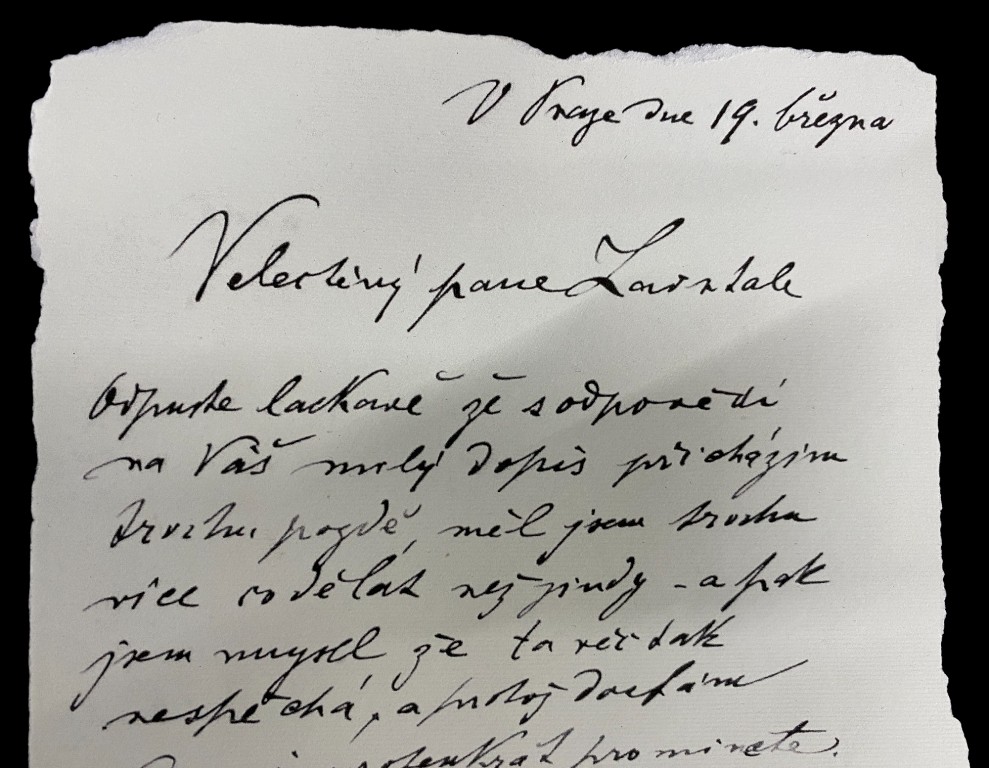 V Praze dne 19. března
Velectěný pane
Odpusťte laskavě že s odpovědí
na Váš milý dopis přicházím
trochu pozdě, měl jsem trochu
více co dělat než jindy - a pak
jsem myslel že ta věc tak
nespěchá, a protož doufám
prominete.